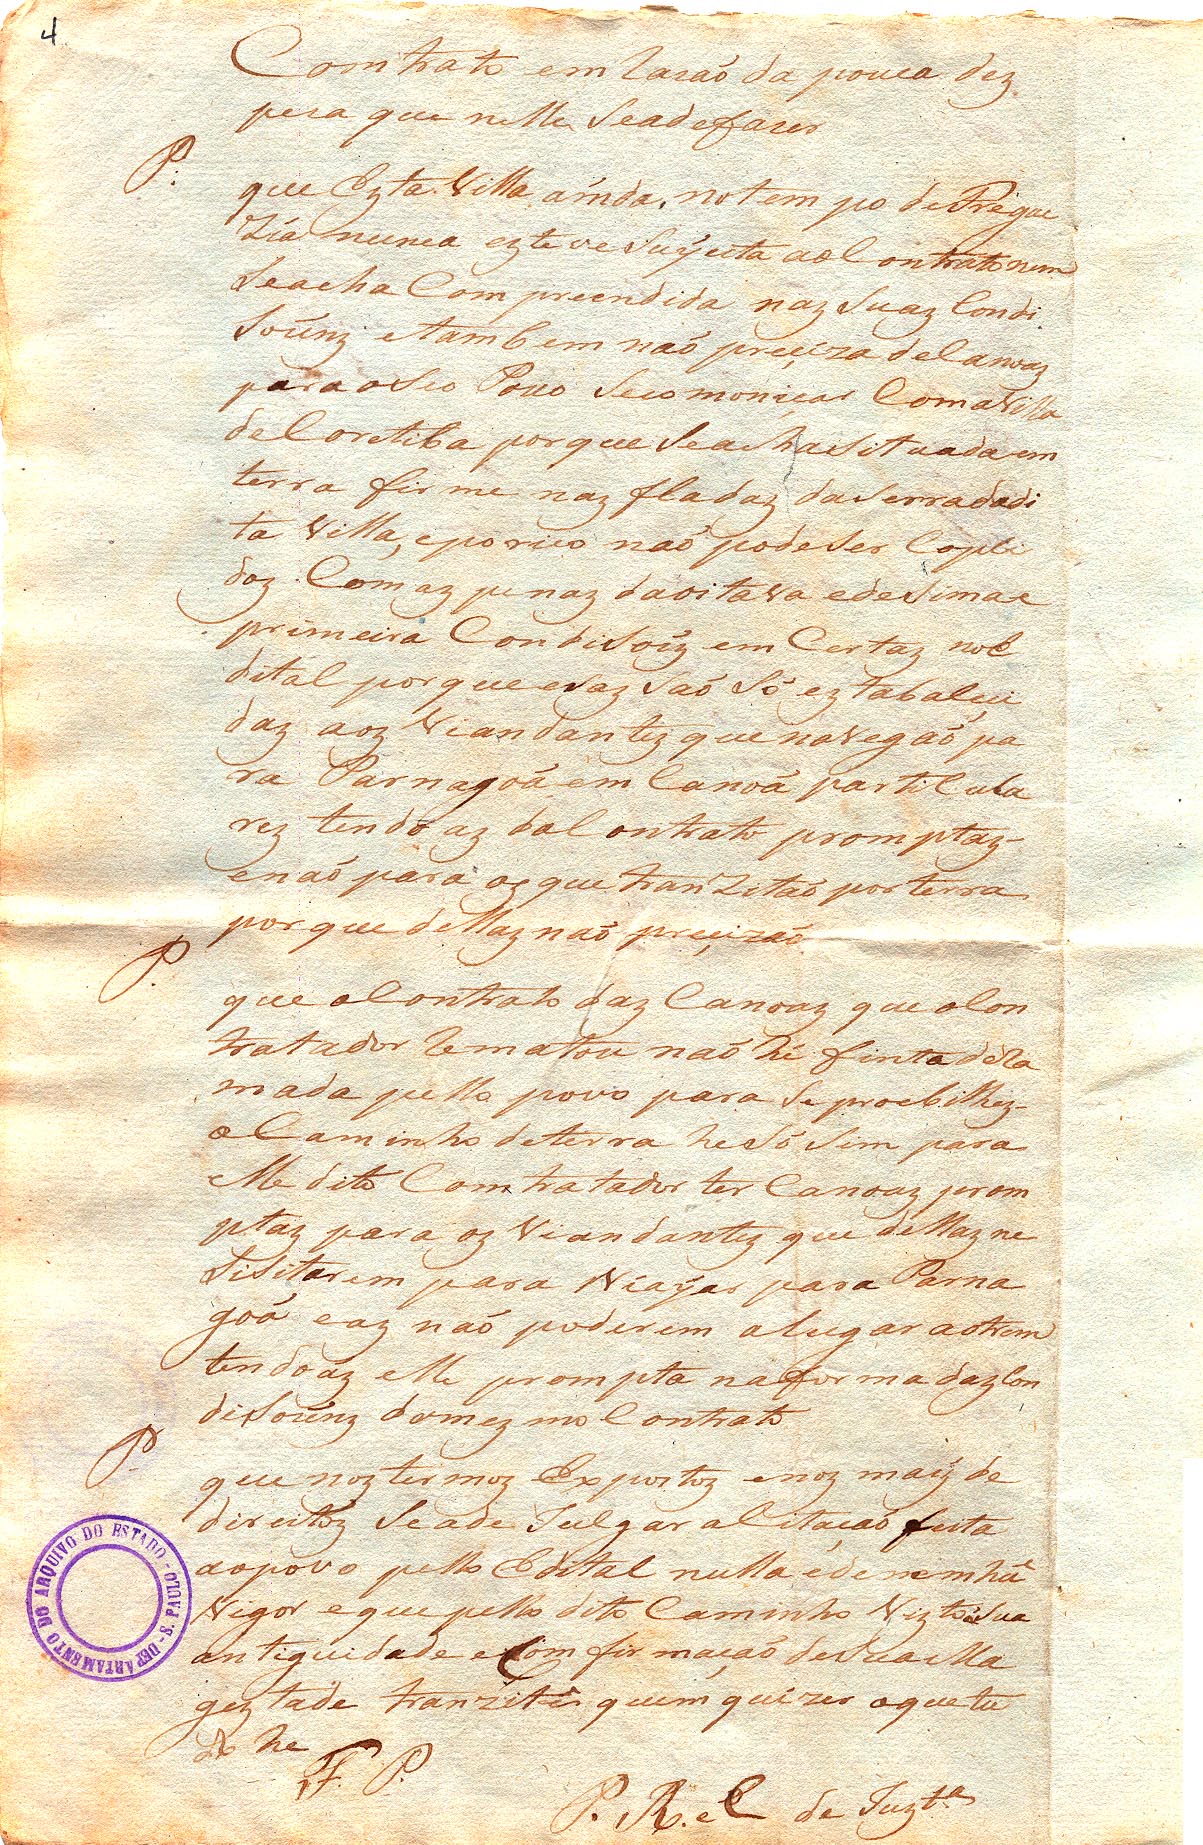 4
Comtrato em Razaõ da pouca dez
peza que nelle Seadefazer
P.
que Ezta Villa ainda notempo de Fregue
Zia nunca ezteve Sujeita aoContrato nem
Seacha Compreendida naz Suaz Condi
soiñz etambem naõ preçiza deCanoaz
para oSeo Povo Secomoniçar ComaVilla
deCoretiba porque Seacha Situada em
terra firme naz fladaz daSerra dadi
ta Villa, eporiso naõ podeSer Copli
doz Com az penaz daoitava edesima e
primeira Condisoiz em Certaz noE
dital porque esaz Saõ Só eztabaleçi
daz aoz Viandantez que navegaõ pa
ra Parnagoá em Canoá particula
rez tendo az doContrato promptaz
enaõ para oz que tranzitaõ por terra
porque dellaz naõ preçizaõ
P.
que oContrato daz Canoaz que oCon
tratador Rematou naõ hé finta derra
mada pello povo para Seproebilhez
oCaminho deterra he Só Sim para
elle dito Comtratador ter Canoaz prom
ptaz para oz Viandantez que dellaz ne
Sisitarem para Viajar para Parna
goá eaz naõ poderem alugar aotrem
tendoaz elle prompta naforma dazCon
disoiñz domezmo Contrato
P.
que noztermoz Expostoz enoz maiz de
direitoz Seade Julgar aCitaçaõ feita
aopovo pello Edital nulla édenemhũ
Vigor eque pello dito Caminho Vizto aSua
antiguidade eComfirmaçaõ deSua Ma
geztade tranzite quem quizer oque tu
do he
F. P.
P. R. e C de Juzt.ª
DEPARTAMENTO DO ARQUIVO DO ESTADO - S. PAULO -